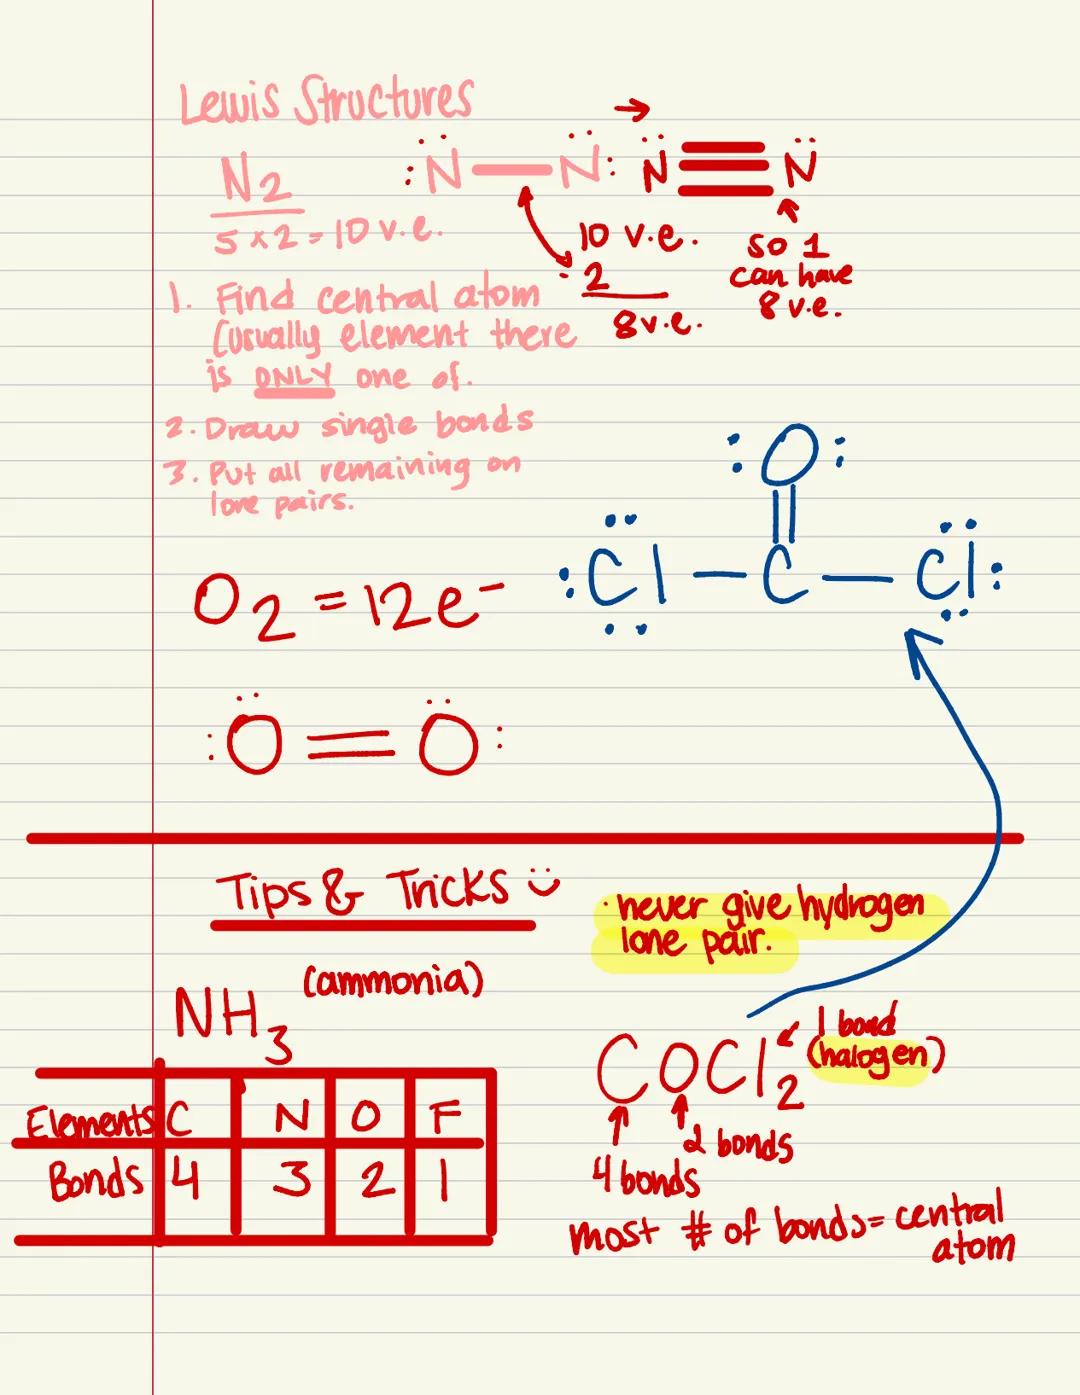 Lewis Structures
N2
5 x 2 = 10 v.e.
:N̈ — N̈: → N̈ ≡ N̈
10 v.e.
- 2
8 v.e.
so 1
can have
8 v.e.
1. Find central atom
(usually element there
is ONLY one of.
2. Draw single bonds
3. Put all remaining on
lone pairs.
:O:
||
:Cl — C — Cl:
O2 = 12e-
:Ö = Ö:
Tips & Tricks
· never give hydrogen
lone pair.
(ammonia)
NH3
Elements C N O F
Bonds 4 3 2 1
1 bond
(halogen)
COCl2
2 bonds
4 bonds
most # of bonds = central
atom